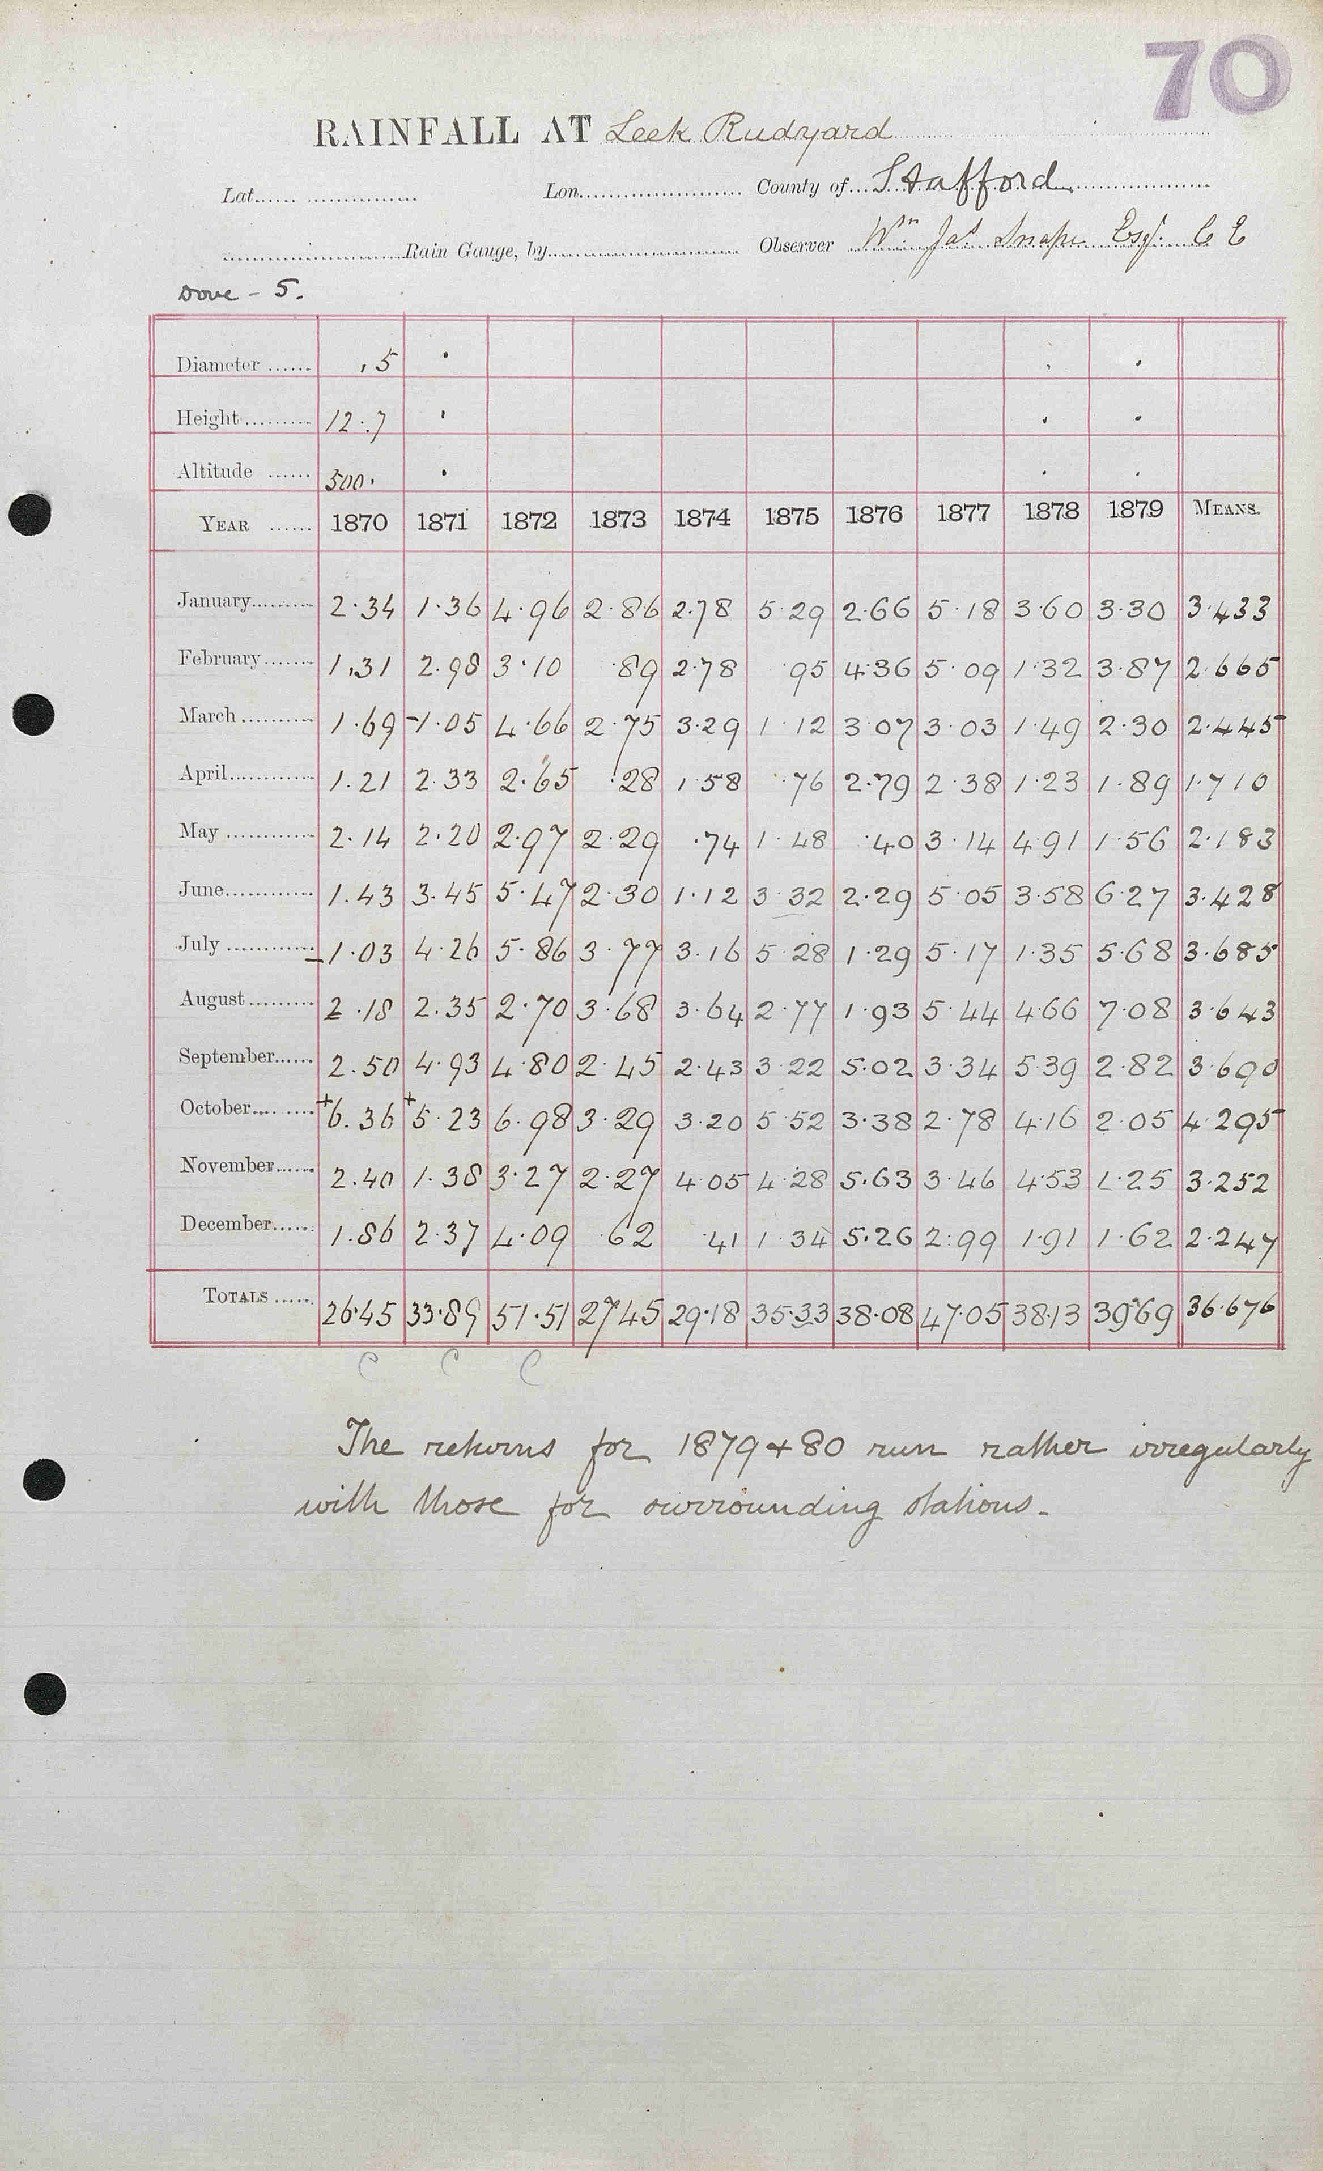 70
RAINFALL AT Leek Rudyard
Lat. Lon. County of Stafford
Rain Gauge, by Observer Wm Jas Snape Esqr. C E
Dove - 5.
Diameter ,5
Height 12.7
Altitude 500.
YEAR 1870 1871 1872 1873 1874 1875 1876 1877 1878 1879 MEANS.
January 2.34 1.36 4.96 2.86 2.78 5.29 2.66 5.18 3.60 3.30 3.433
February 1.31 2.98 3.10 .89 2.78 95 4.36 5.09 1.32 3.87 2.665
March 1.69 -1.05 4.66 2.75 3.29 1 12 3 07 3.03 1.49 2.30 2.445
April 1.21 2.33 2.65 .28 1.58 .76 2.79 2.38 1.23 1.89 1.710
May 2.14 2.20 2.97 2.29 .74 1.48 .40 3.14 4.91 1.56 2.183
June 1.43 3.45 5.47 2.30 1.12 3 32 2.29 5 05 3.58 6.27 3.428
July -1.03 4.26 5.86 3.77 3.16 5 28 1.29 5.17 1.35 5.68 3.685
August 2.18 2.35 2.70 3.68 3.64 2.77 1.93 5.44 4.66 7.08 3.643
September 2.50 4.93 4.80 2.45 2.43 3.22 5.02 3.34 5.39 2.82 3.690
October +6.36 +5.23 6.98 3.29 3.20 5 52 3.38 2.78 4.16 2.05 4.295
November 2.40 1.38 3.27 2.27 4.05 4.28 5.63 3.46 4.53 1.25 3.252
December 1.86 2.37 4.09 .62 .41 1 34 5.26 2.99 1.91 1.62 2.247
TOTALS 26.45 33.89 51.51 27.45 29.18 35.33 38.08 47.05 38.13 39.69 36.676
C C C
The returns for 1879 & 80 run rather irregularly
with those for surrounding stations.